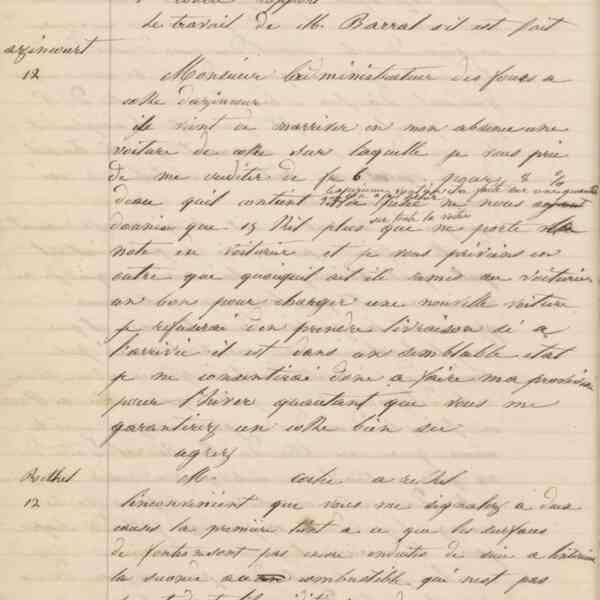 le travail de M. Barral sil est fait
azincourt
12
Monsieur Ladministrateur des fours a
coke dazincour
il vient de marriver en mon absence une
voiture de coke sur laquelle je vous prie
de me crediter de fr 6 pour % %
deau quil contient
sur toute la voiture
que 15 Kil plus que ne porte
note en voiturier et je vous previens en
outre que quoiquil ait ete remis au voiturier
un bons pour charger une nouvelle voiture
je refuserai den prendre livraison si a
larrivée il est dans un semblable etat
je ne consentirai donc a faire ma provision
pour lhiver quautant que vous me
garantirez un coke bien sec
agrez
Rethel
12
M. a rethel
linconvenient que vous me signalez a deux
causes la premiere tient a ce que les surfaces
de font pas encore enduites de suie a linterieur
la seconde au combustible qui nest pas